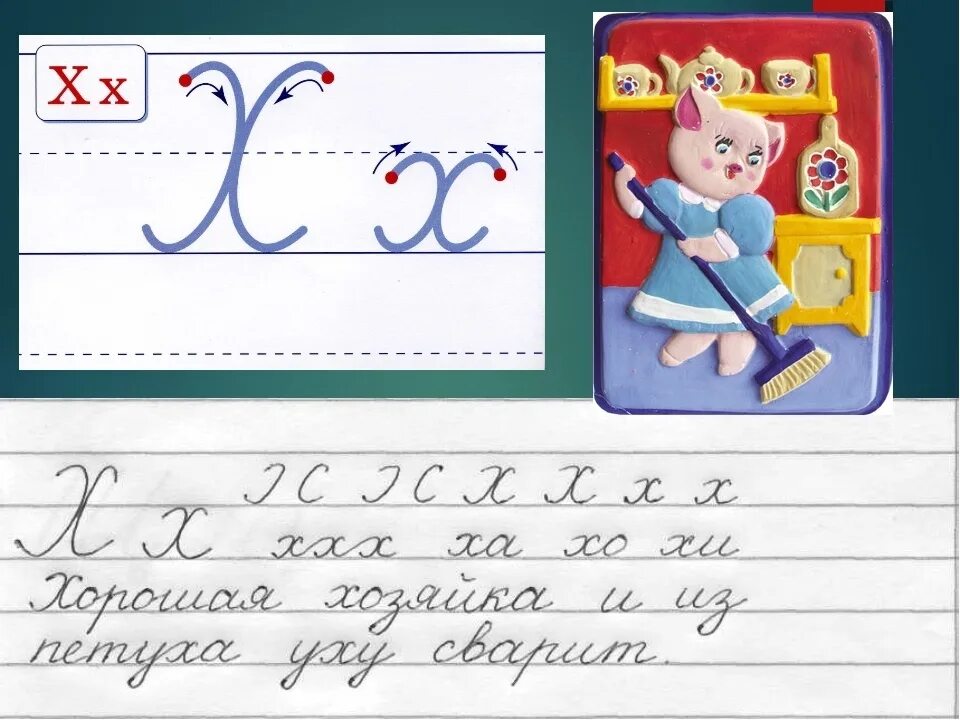 Х х
Х х
Х Э С Э С Х Х х х
х ххх ха хо хи
Хорошая хозяйка и из
петуха уху сварит.